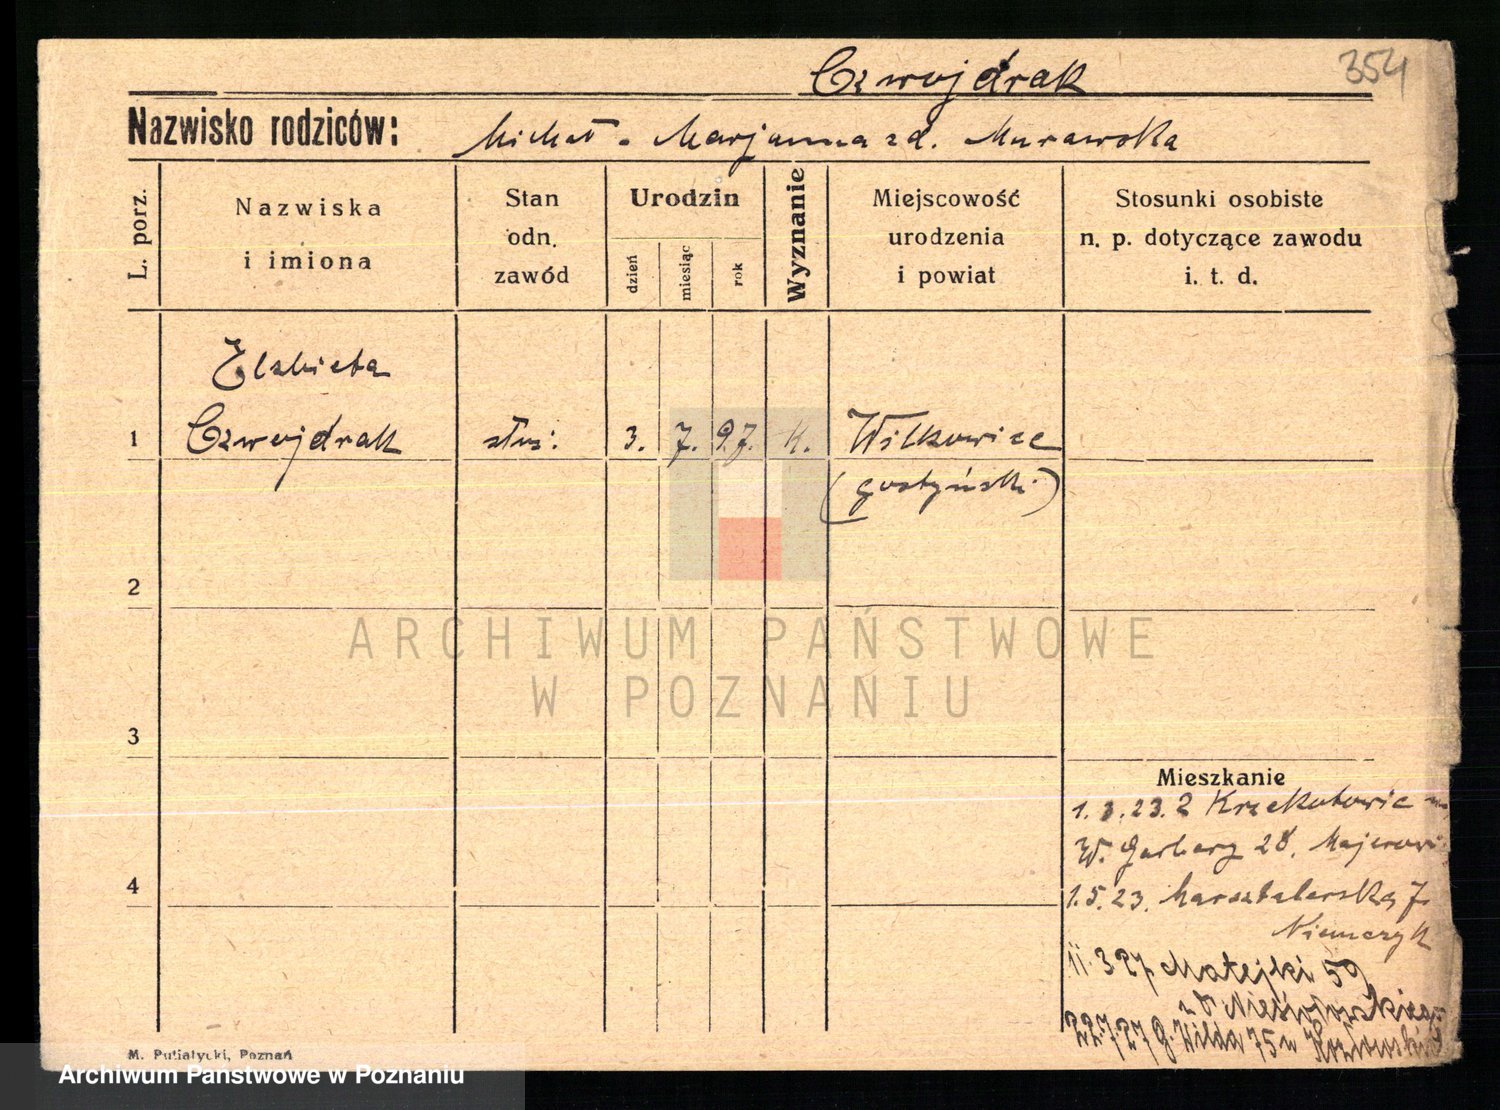 Czwojdrak
354
Nazwisko rodziców: Michał - Marjanna zd. Murawska
L. porz.
Nazwiska
i imiona
Stan
odn.
zawód
Urodzin
dzień
miesiąc
rok
Wyznanie
Miejscowość
urodzenia
i powiat
Stosunki osobiste
n. p. dotyczące zawodu
i. t. d.
Elżbieta
1 Czwojdrak służ. 3. 7. 97. K. Wilkowice
(gostyński)
2
3
4
Mieszkanie
1.3.23. z Krzekotowic
W. Garbary 28. Majerowi
1.5.23. Marsztalerska 7.
Niemczyk
11.3.27 Matejki 59
22.7.27 G. Wilda 75
M. Putiatycki, Poznań
ARCHIWUM PAŃSTWOWE
W POZNANIU
Archiwum Państwowe w Poznaniu